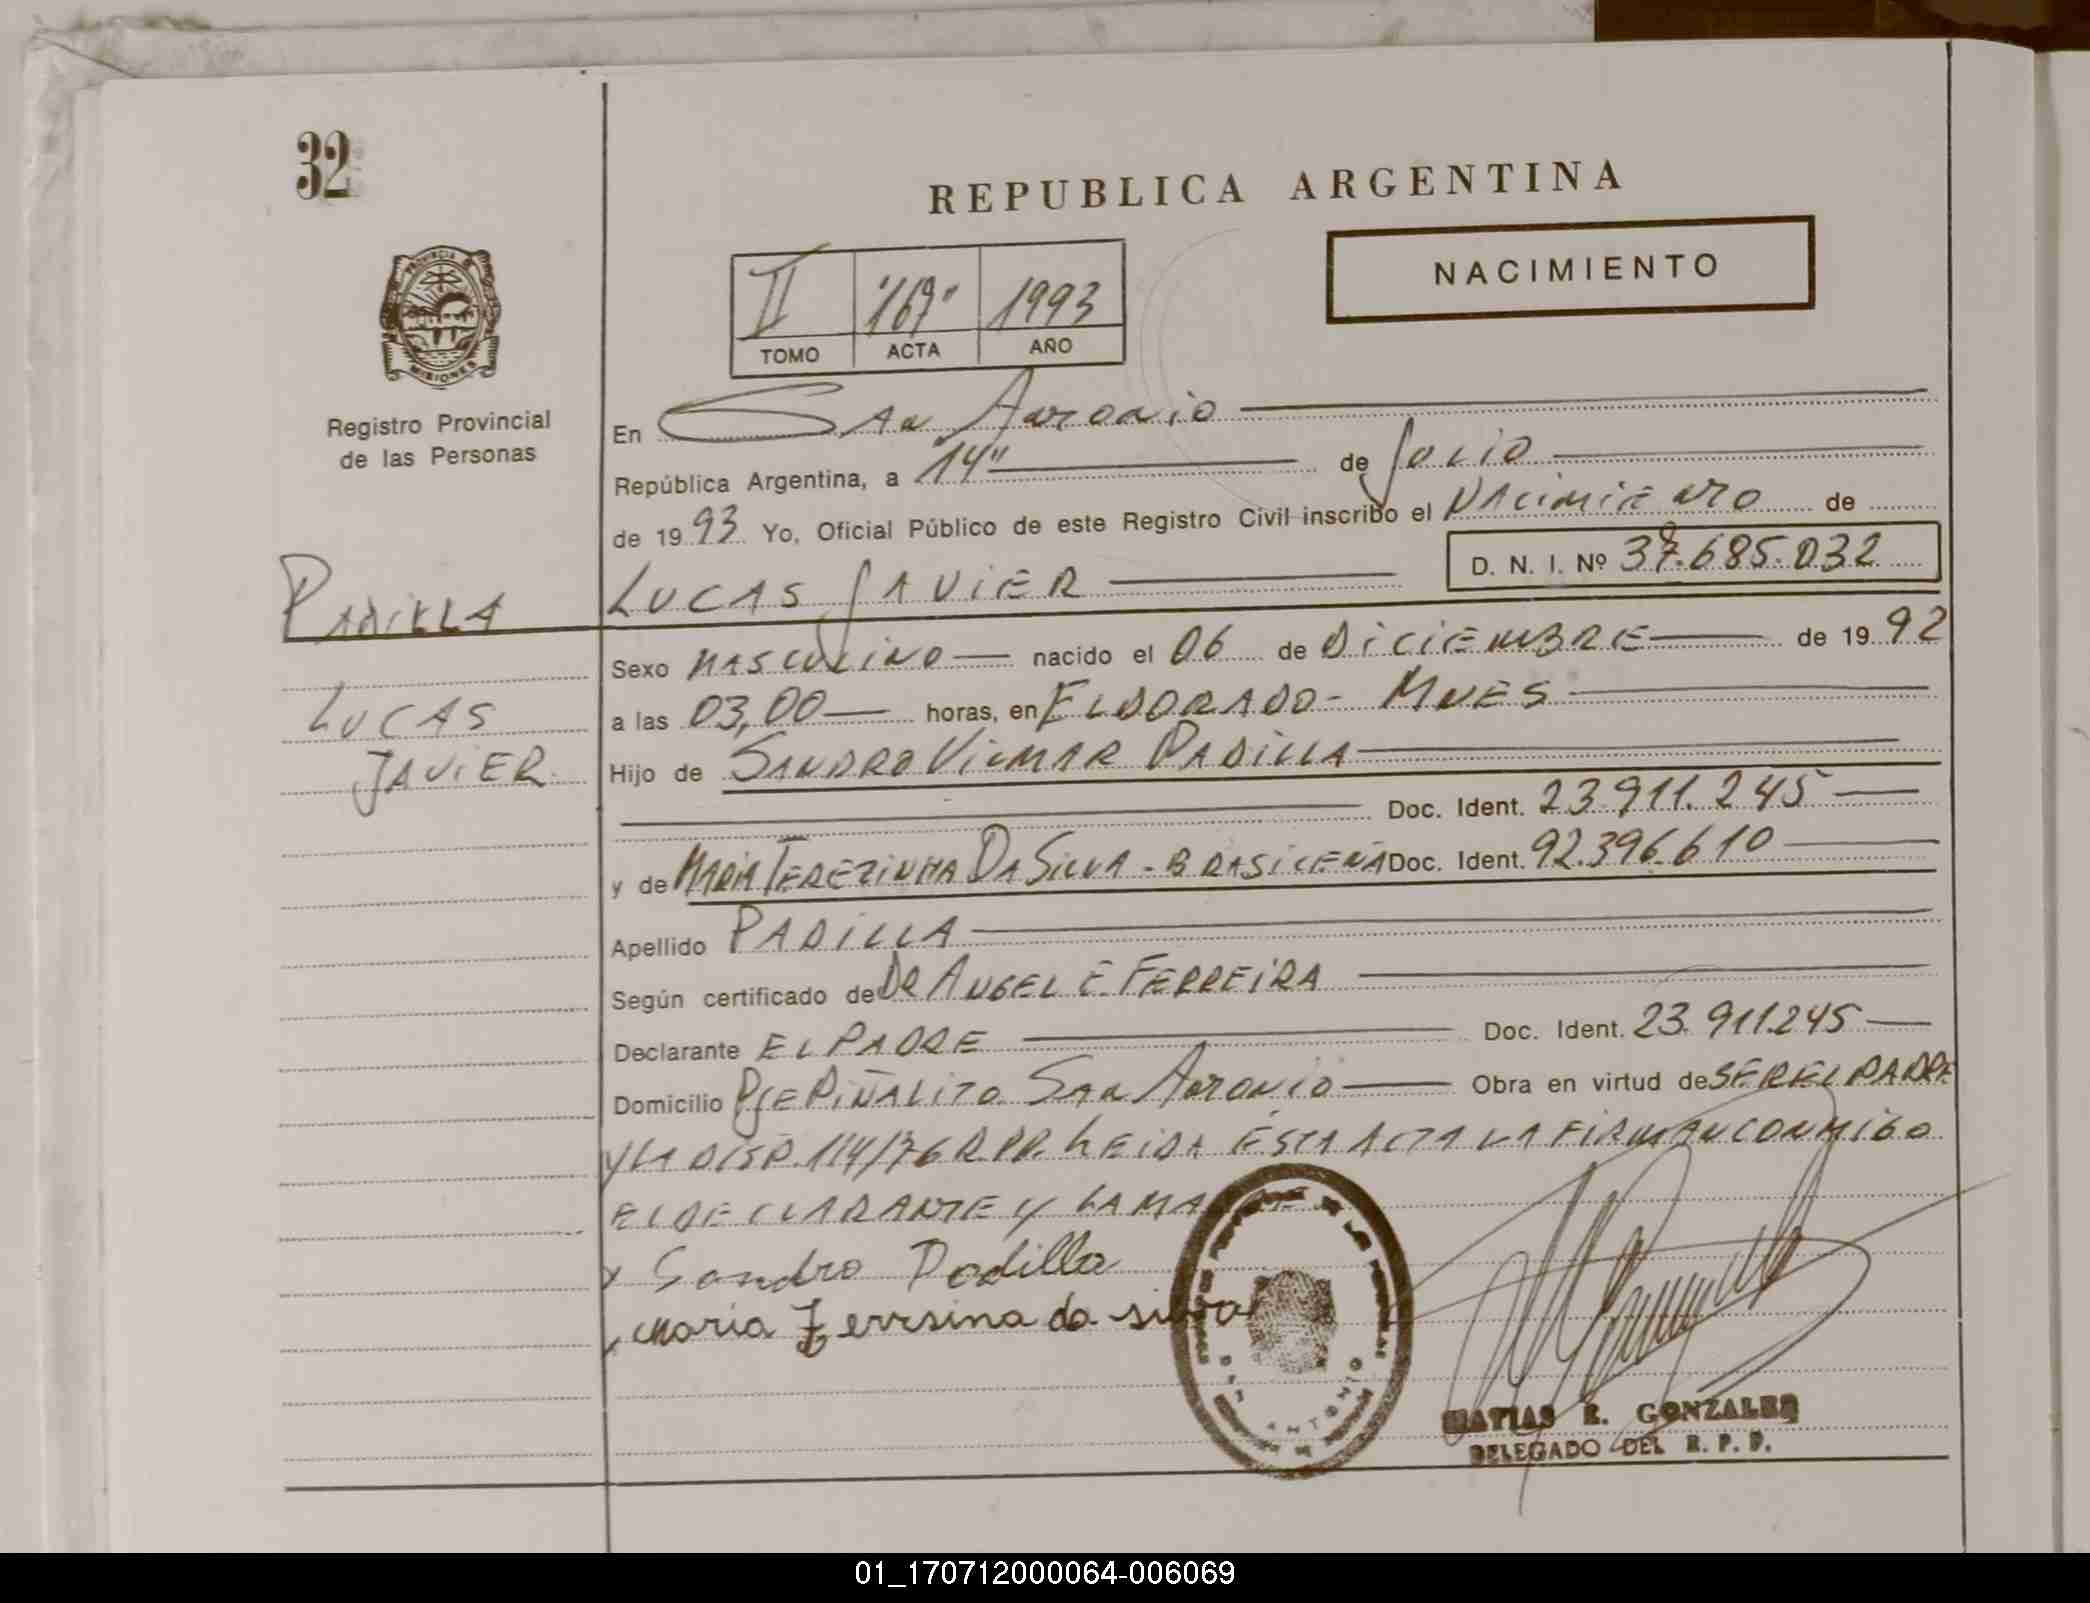 32
REPUBLICA ARGENTINA
NACIMIENTO
II "169" 1993
TOMO ACTA AÑO
PROVINCIA DE
MISIONES
Registro Provincial
de las Personas
PADILLA
LUCAS
JAVIER
En San Antonio
República Argentina, a "14" de Julio
de 1993 Yo, Oficial Público de este Registro Civil inscribo el NACIMIENTO de
D. N. I. Nº 37.685.032
LUCAS JAVIER
Sexo MASCULINO nacido el 06 de DICIEMBRE de 1992
a las 03,00 horas, en ELDORADO - MNES
Hijo de SANDRO VILMAR PADILLA
Doc. Ident. 23.911.245
y de MARIA TEREZINHA DA SILVA - BRASILEÑA Doc. Ident. 92.396.610
Apellido PADILLA
Según certificado de DR ANGEL E. FERREIRA
Declarante EL PADRE Doc. Ident. 23.911.245
Domicilio PJE PIÑALITO SAN ANTONIO Obra en virtud de SER EL PADRE
Y LA DISP. 114/76 R.PP. LEIDA ESTA ACTA LA FIRMAN CONMIGO
EL DECLARANTE Y LA MA
x Sandro Padilla
x Maria Terrsina da silva
SAN ANTONIO
MATIAS R. GONZALES
DELEGADO DEL R. P. P.
01_170712000064-006069